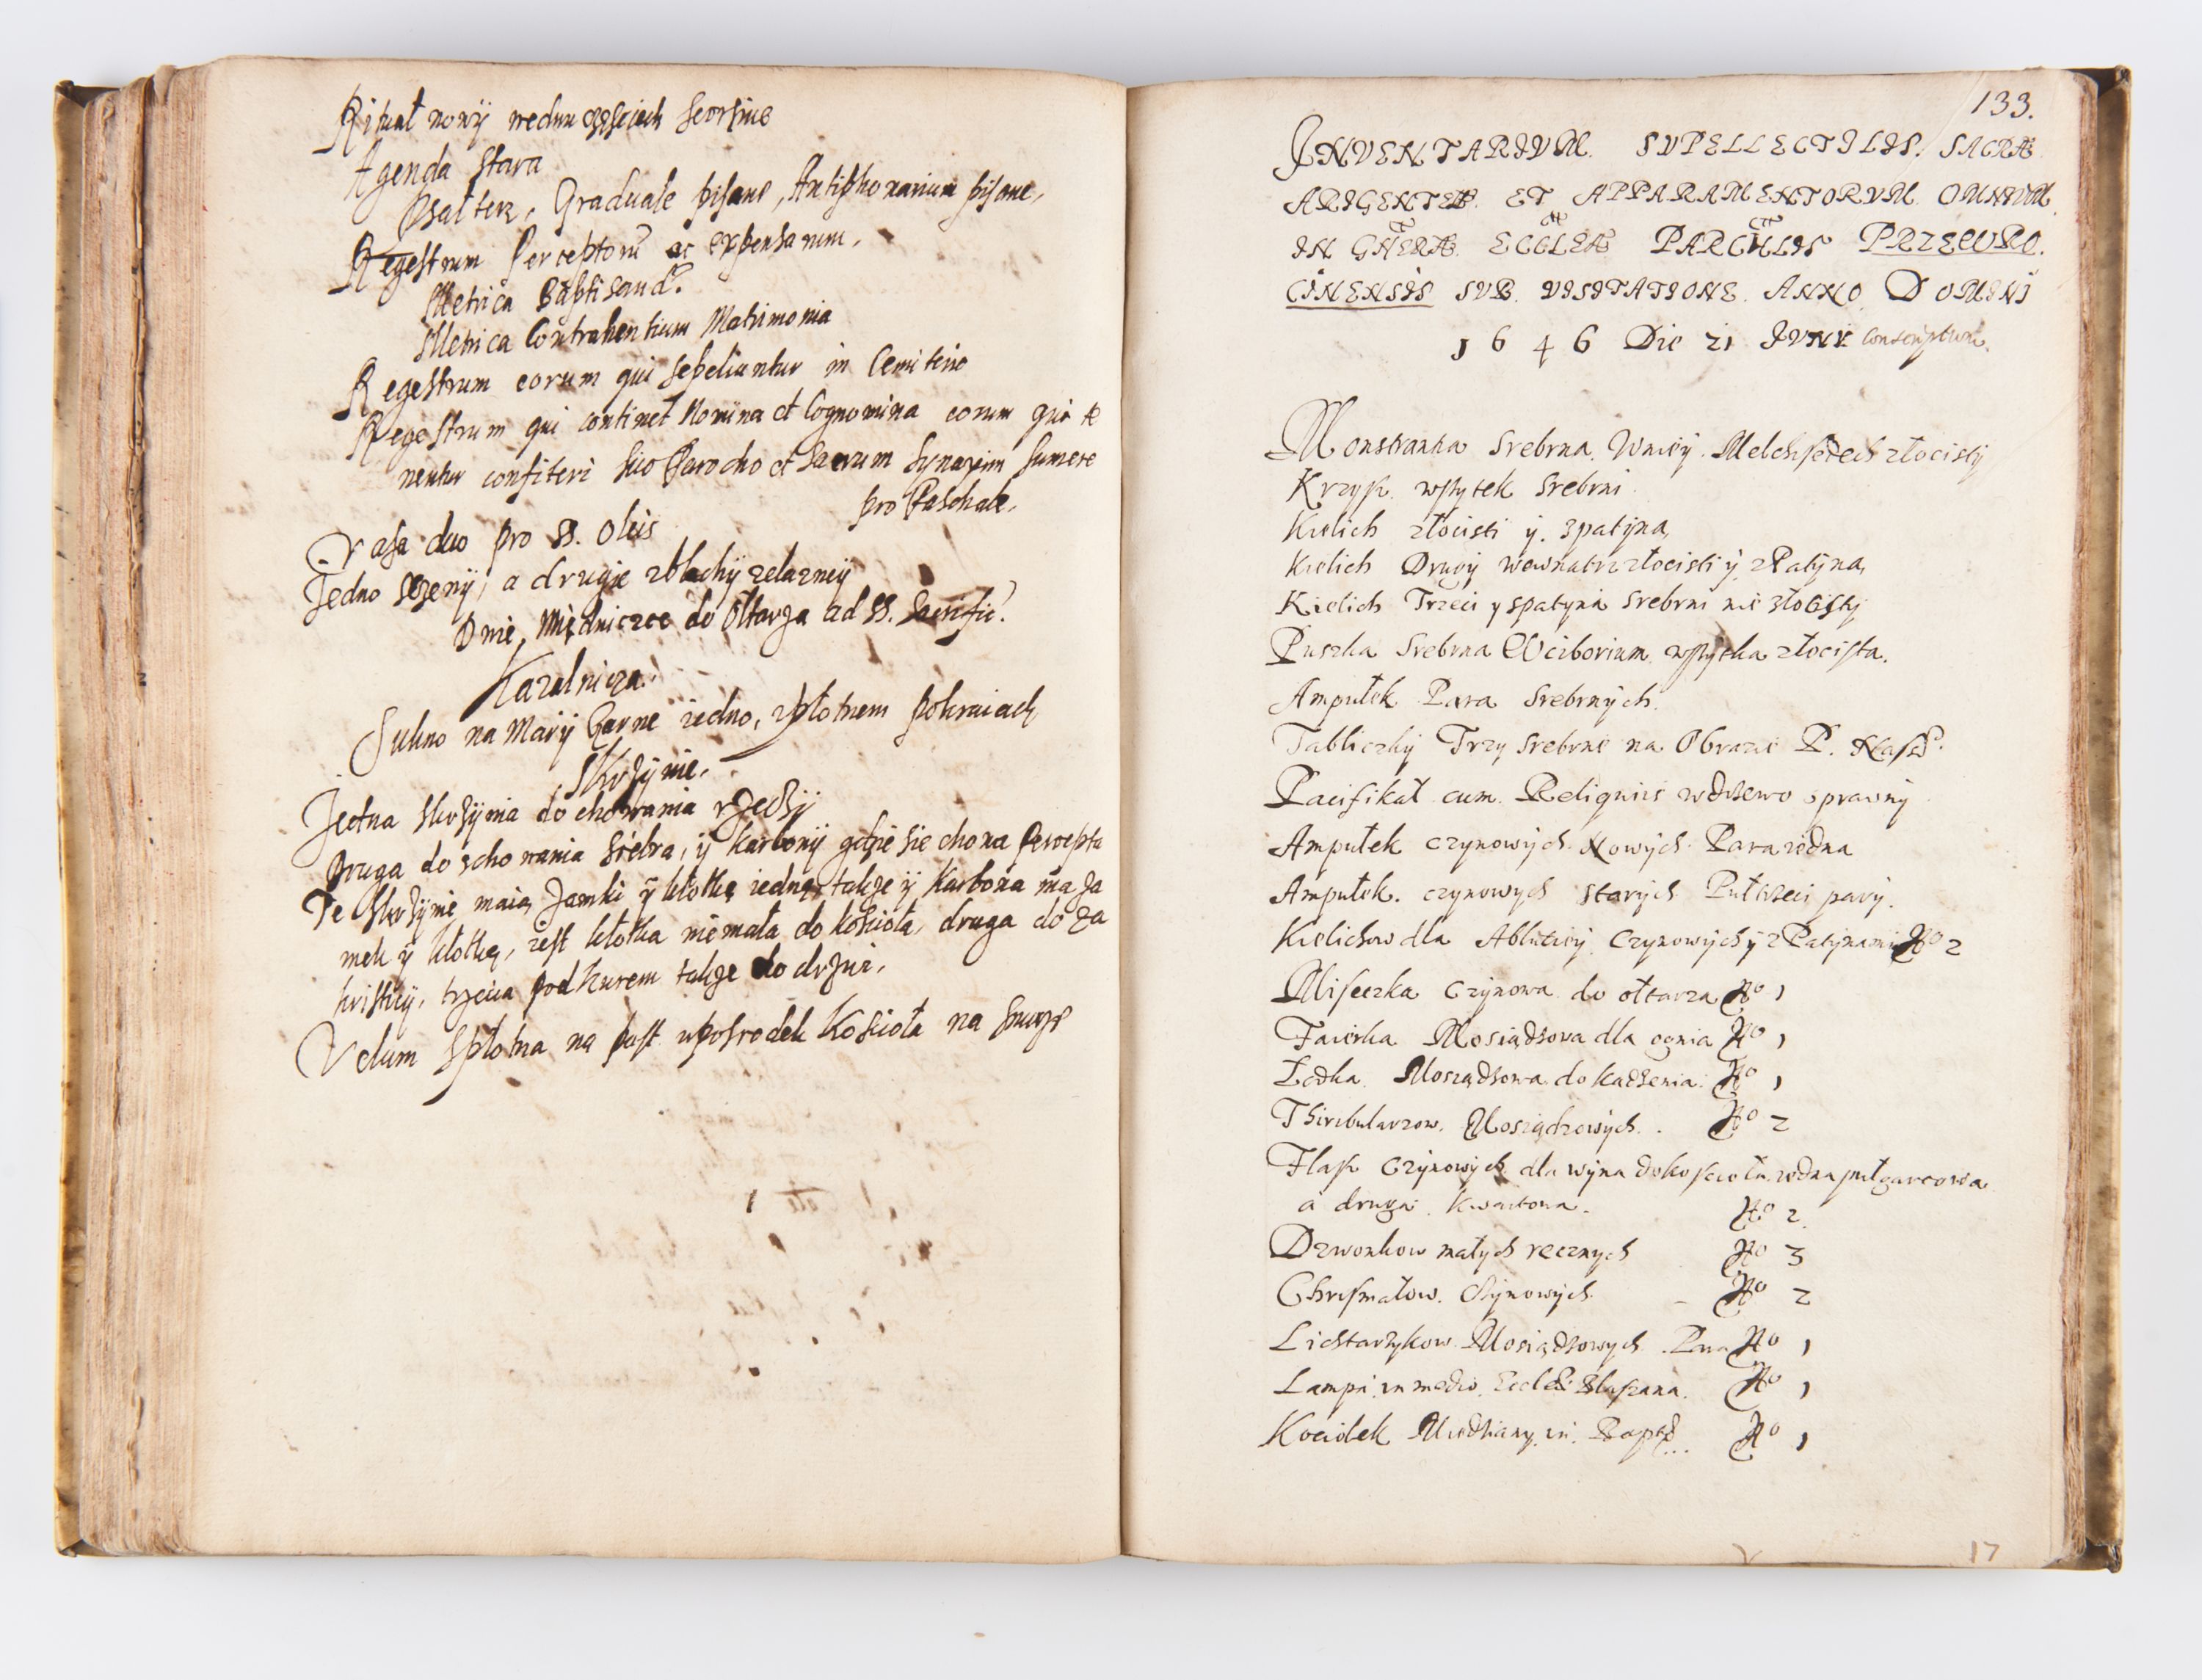 Rituał nowÿ wedwu częściach seorsive
Agenda stara
Psałterz, Graduale pisane, Antiphonarium pisane,
Regestrum Perceptorũ ac expensarum,
Metrica Baptisand.
Metrica Contrahentium Matrimonia
Regestrum eorum qui sepeliuntur in Cemiterio
Regestrum qui continet Nomina et Cognomina eorum qui te
nentur confiteri suo Parocho et Sacrum Synaxim sumere
pro Paschate.
Vasa duo pro SS. Oleis
Jedno, a drugie zblachÿ zelazneÿ
Dwie Miedniczce do Ołtarza ad SS. Sacrific.
Kazalnicza.
Sukno na Marÿ Czarne iedno, zpłotnem pokraiach
Skrzÿnie,
Jedna skrzÿnia do chowania rzeczÿ
Druga do schowania Srebra, ÿ karbonÿ gdzie sie chowa Percepta
Te skrzÿnie maią Zamki ÿ kłotkę iednę, takze ÿ Karbona ma za
mek ÿ kłotkę, iest kłotka niemała do kościoła, druga do za
kristiÿ, trzecia pod kurem takze do drzwi,
Velum spłotna na post wposrodek Kościoła na
133.
INVENTARIUM SUPELLECTILIS SACRÆ
ARGENTEÆ ET APPARAMENTORUM OMNIUM
IN ECCLEÆ PARCHLIS PRZECURO
CINENSIS SUB VISITATIONE ANNO DOMINI
1646 Die 21 IUNII conscriptum.
Monstranka Srebrna, Wnieÿ Melchisedech złocistÿ
Krzyſz wſzytek Srebrni
Kielich złocisti ÿ spatÿną
Kielich Drugÿ wewnatrz złocisti ÿ zPatÿną
Kielich Trzeci y spatyną Srebrni nie złocistÿ
Puszka Srebrna Wciborium wſzytka złociſta.
Ampułek Para Srebrnÿch.
Tabliczkÿ Trzy Srebrne na Obrazie P.
Pacifikał cum Reliquiis wdrzewo oprawnÿ
Ampułek czynowÿch Nowÿch Para iedna
Ampułek czynowych starÿch Pułtrzeci parÿ.
Kielichow dla Ablutieÿ Czynowÿch ÿ zPatÿnami No 2
Miseczka Czÿnowa do ołtarza No 1
Faierka Mosiądzowa dla ognia No 1
Łodka Mosządzowa do kadzenia No 1
Thiribularzow Mosządzowÿch No 2
Flaſz Czÿnowÿch dla wÿna do koſcioła iedna pułgarcowa
a druga kwartowa. No 2
Dzwonkow małÿch recznych No 3
Chrismałow Czÿnowÿch No 2
Lichtarzykow Mosiądzowych Para No 1
Lampa in medio Ecclæ Blaſzana. No 1
Kociołek Miedziany in No 1
17